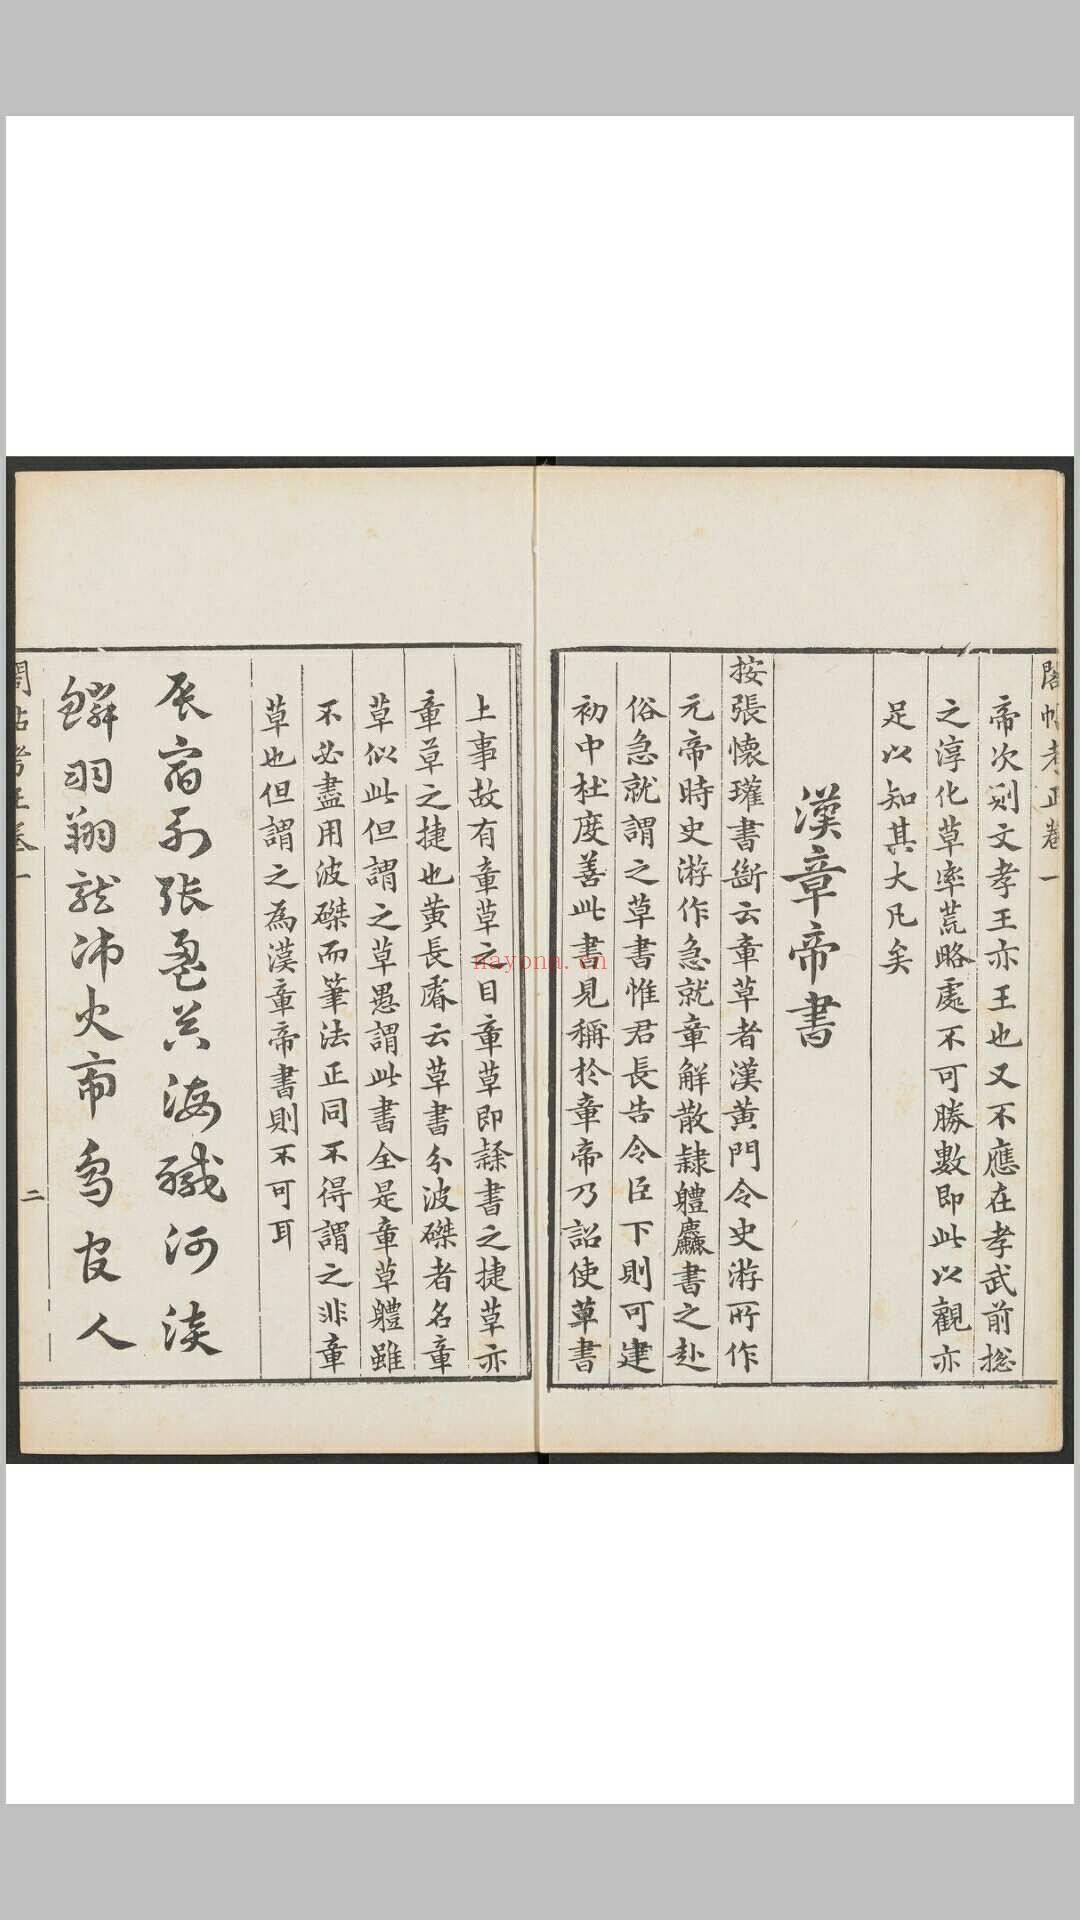 閣帖考正卷一
帝次則文孝王亦王也又不應在孝武前揔
之淳化草率荒略處不可勝數即此以觀亦
足以知其大凡矣
漢章帝書
按張懷瓘書斷云章草者漢黃門令史游所作
元帝時史游作急就章解散隸體麤書之赴
俗急就謂之草書惟君長告令臣下則可建
初中杜度善此書見稱於章帝乃詔使草書
上事故有章草之目章草即隸書之捷草亦
章草之捷也黃長睿云草書分波磔者名章
草似此但謂之草愚謂此書全是章草體雖
不必盡用波磔而筆法正同不得謂之非章
草也但謂之為漢章帝書則不可耳
辰宿列張盈昃海鹹河淡
鱗羽翔龍師火帝鳥官人
閣帖考正卷一
二
nayona.cn